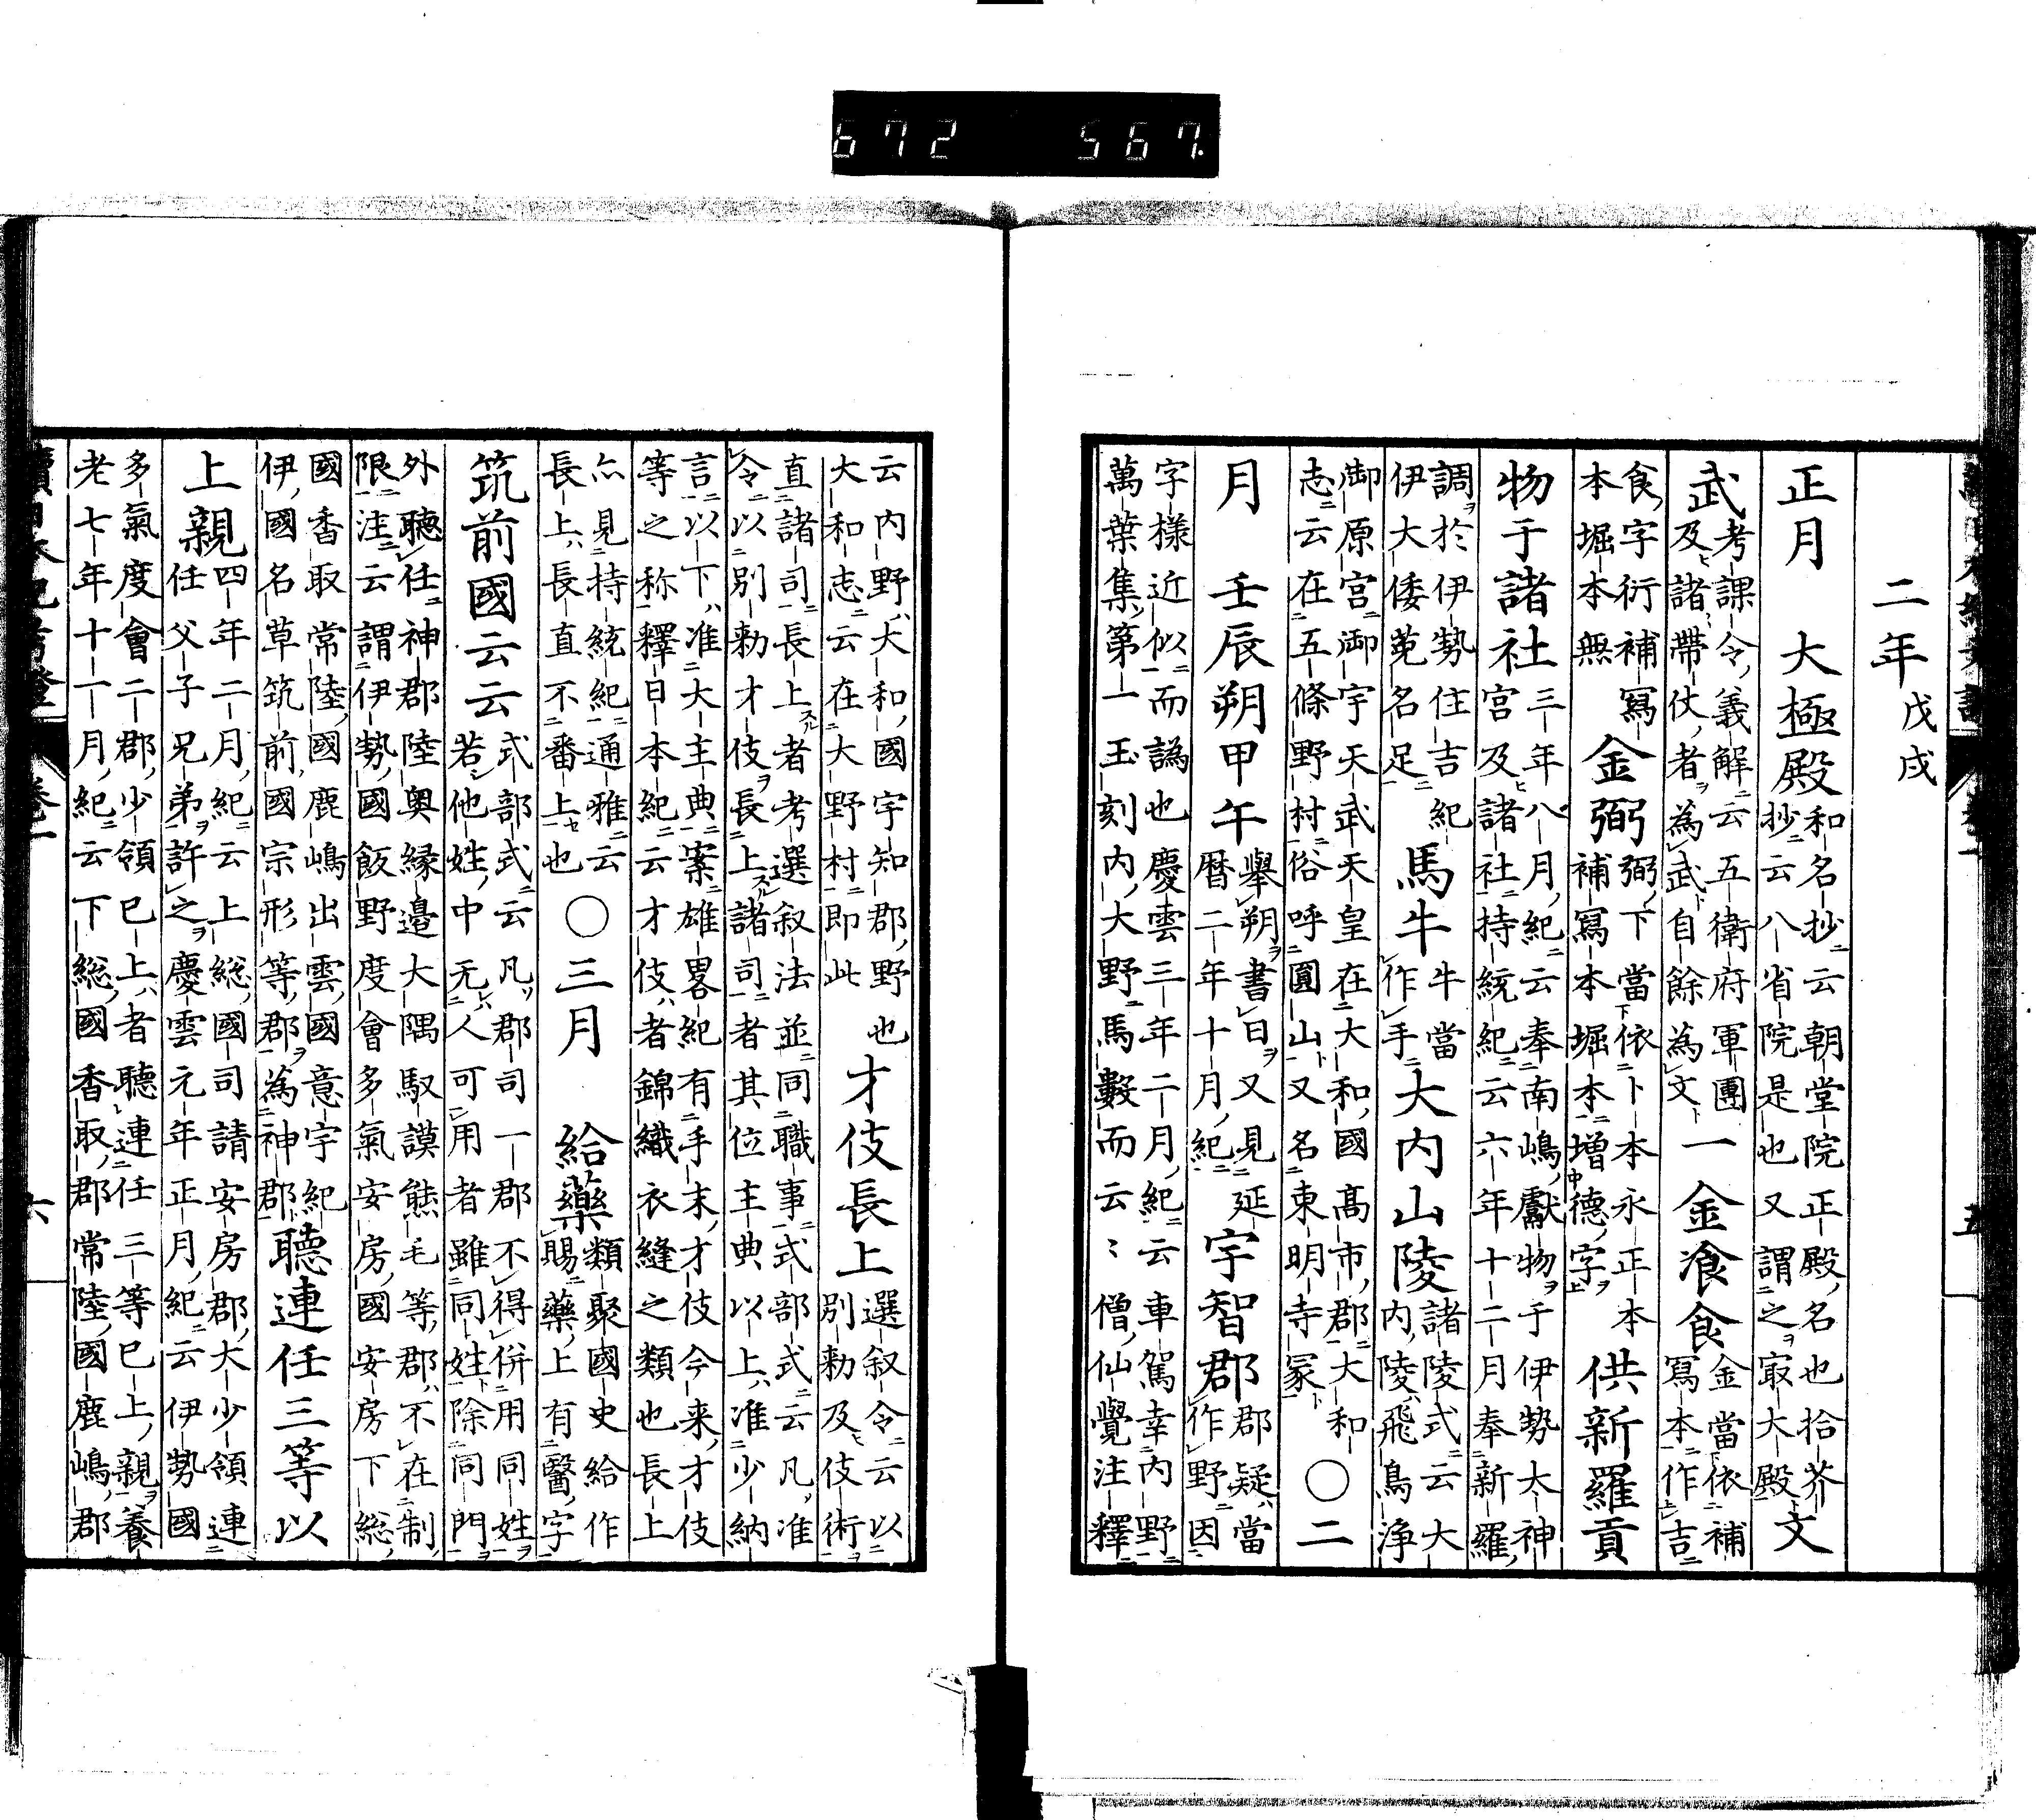 672 567
二年戊戌
正月 大極殿和名抄云朝堂院正殿名也拾芥
抄云八省院是也又謂之㝡大殿文
武考課令義解云五衛府軍團
及諸帶仗者為武自餘為文一金飡食金當依補
寫本作吉
食字衍補寫
本堀本無金弼弼下當依卜本永正本
補寫本堀本増德字供新羅貢
物于諸社三年八月紀云奉南嶋獻物于伊勢太神
宮及諸社持統紀云六年十二月奉新羅
調於伊勢住吉紀
伊大倭菟名足馬牛牛當
作手大内山陵諸陵式云大
内陵飛鳥淨
御原宮御宇天武天皇在大和國髙市郡大和
志云在五條野村俗呼圓山又名東明寺冢○二
月 壬辰朔甲午舉朔書日又見延
暦二年十月紀宇智郡郡疑當
作野因
字樣近似而譌也慶雲三年二月紀云車駕幸内野
萬葉集第一玉刻内大野馬數而云〻僧仙覺注釋
云内野大和國宇知郡野也
大和志云在大野村即此才伎長上選叙令云以
別勅及伎術
直諸司長上者考選叙法並同職事式部式云凡准
令以別勅才伎長上諸司者其位主典以上准少納
言以下准大主典案雄畧紀有手末才伎今来才伎
等之称釋日本紀云才伎者錦織衣縫之類也長上
亦見持統紀通雅云
長上長直不番上也○三月 給藥類聚國史給作
賜藥上有醫字
筑前國云云式部式云凡郡司一郡不得併用同姓
若他姓中无人可用者雖同姓除同門
外聽任神郡陸奥縁邉大隅馭謨熊毛等郡不在制
限注云謂伊勢國飯野度會多氣安房國安房下総
國香取常陸國鹿嶋出雲國意宇紀
伊國名草筑前國宗形等郡為神郡聽連任三等以
上親四年二月紀云上総國司請安房郡大少領連
任父子兄弟許之慶雲元年正月紀云伊勢國
多氣度會二郡少領已上者聽連任三等已上親養
老七年十一月紀云下総國香取郡常陸國鹿嶋郡
六